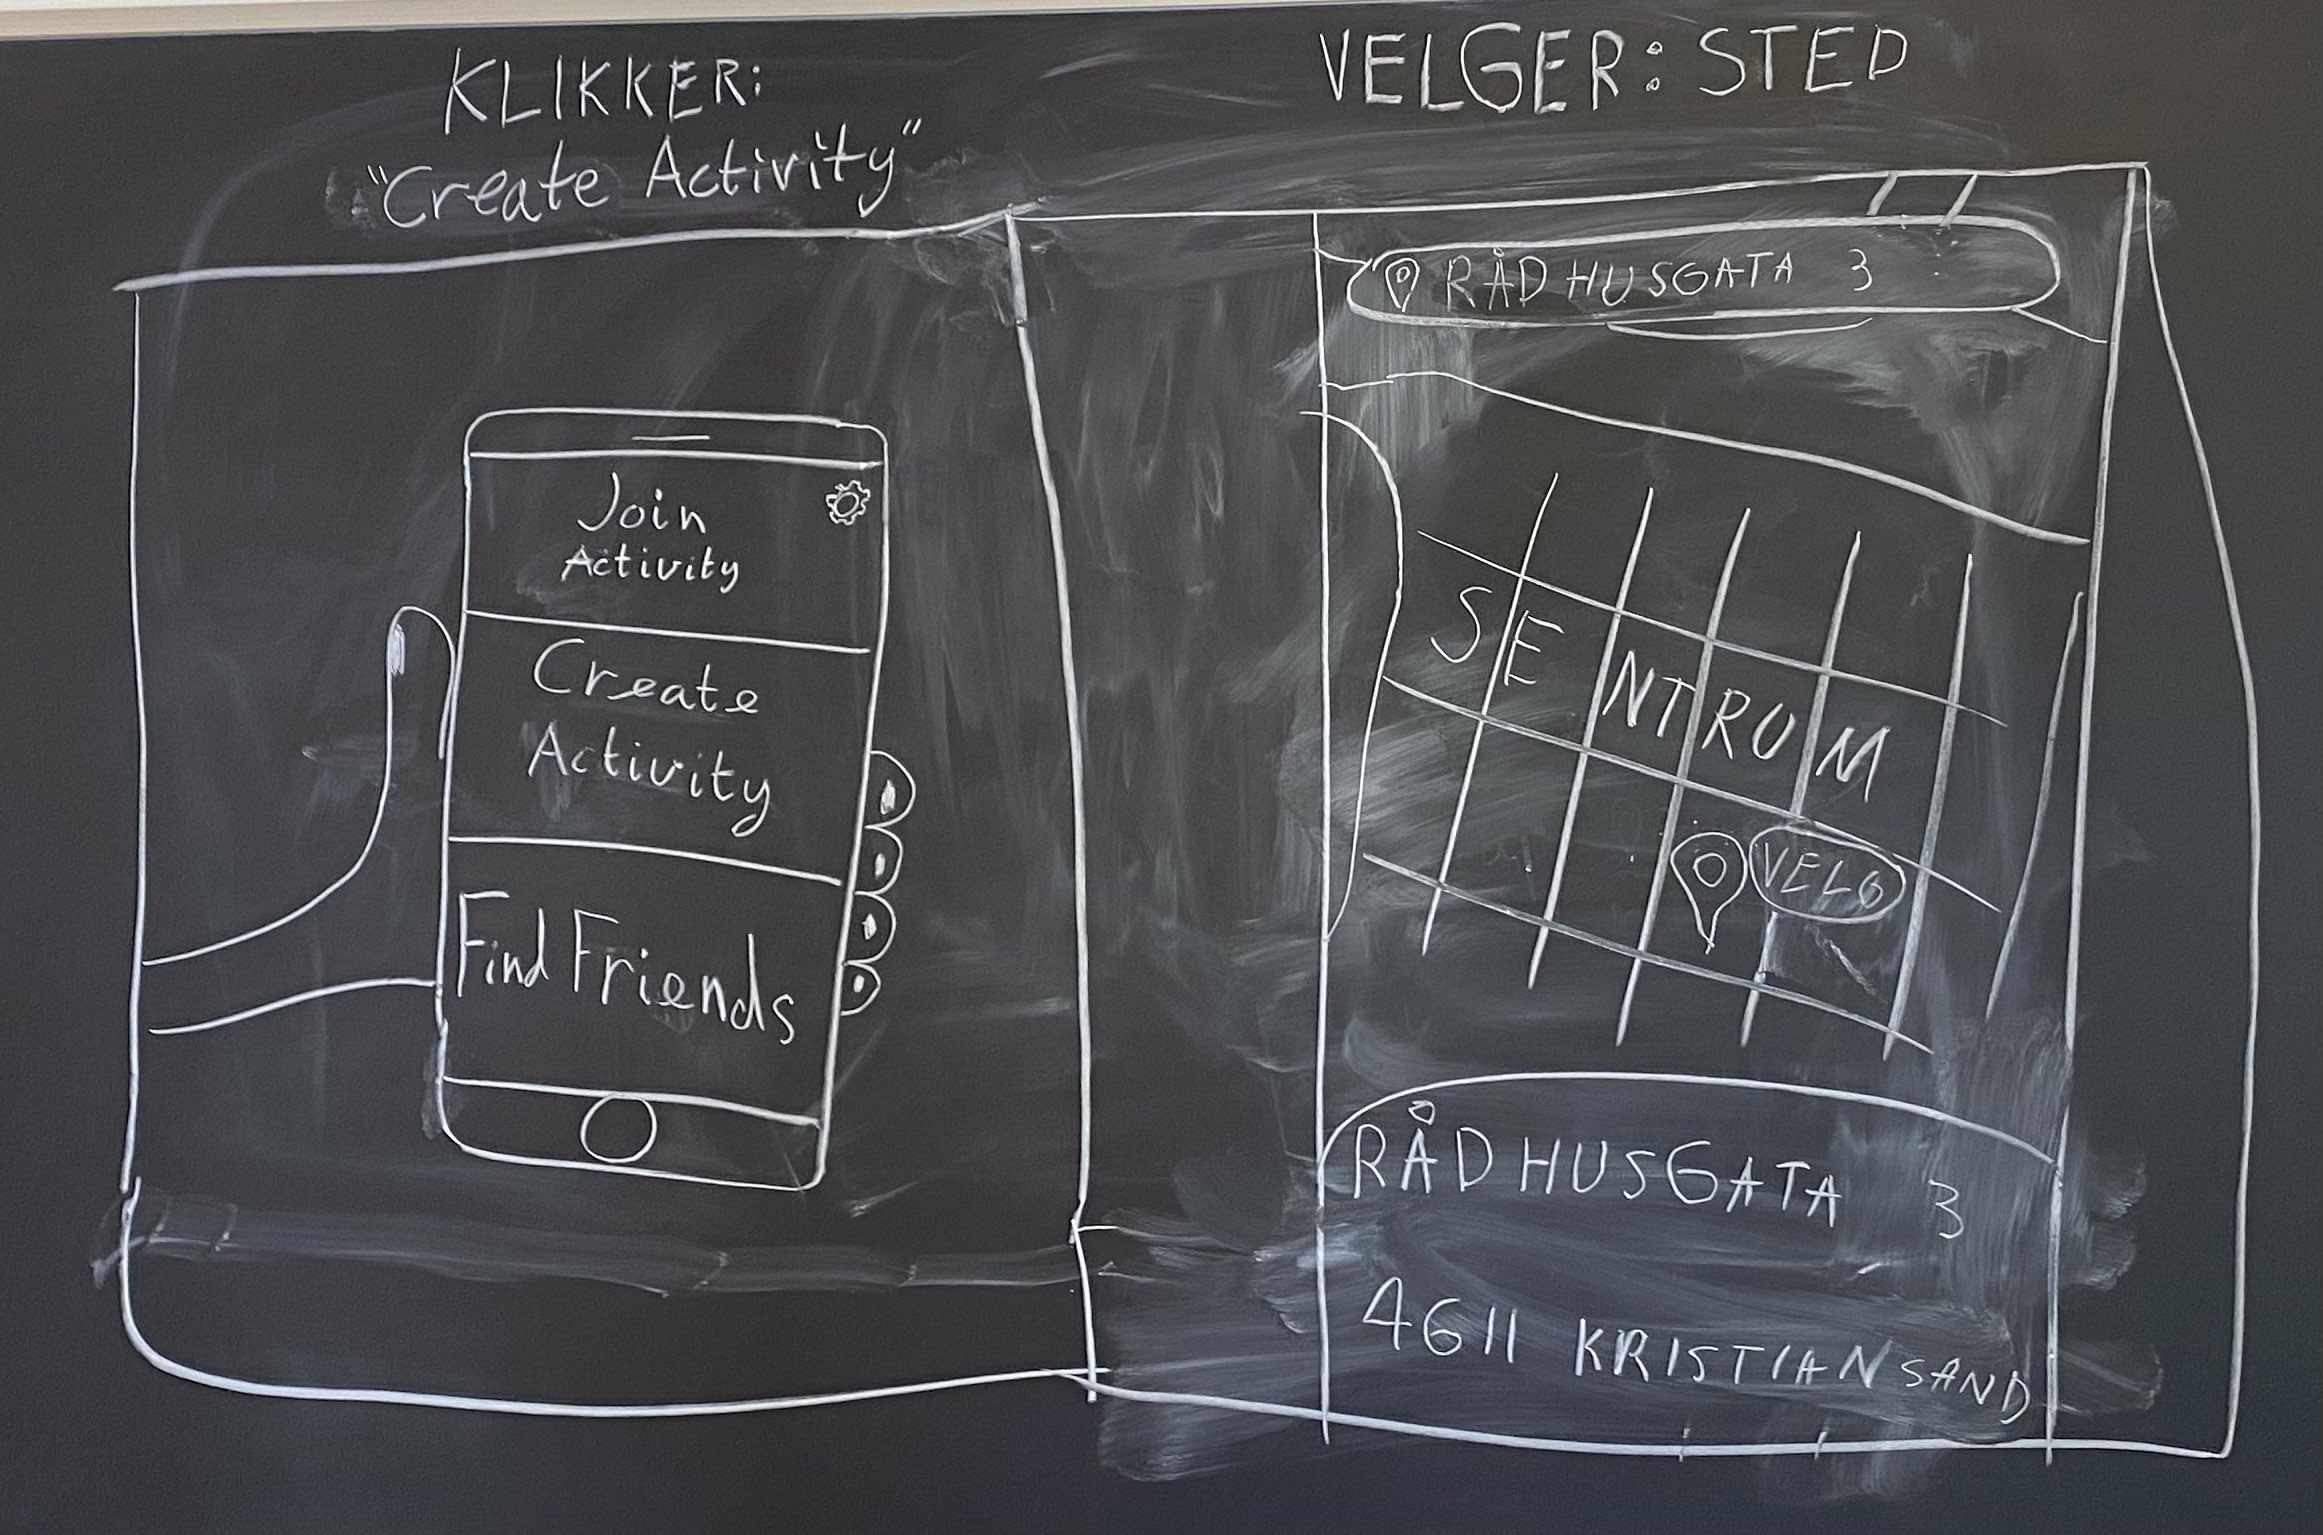 KLIKKER:
"Create Activity"
Join
Activity
Create
Activity
Find Friends
VELGER: STED
RÅDHUSGATA 3
SENTRUM
VELG
RÅDHUSGATA 3
4611 KRISTIANSAND